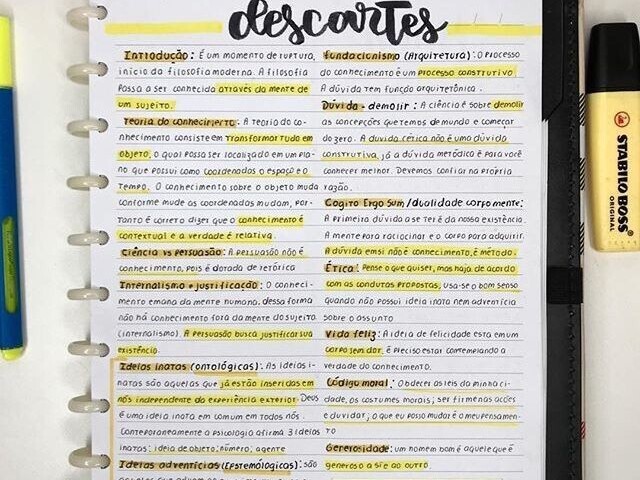 descartes
Introdução: É um momento de ruptura,
início da filosofia moderna. A filosofia
passa a ser conhecida através da mente de
um sujeito.
Teoria do conhecimento: A teoria do co-
nhecimento consiste em transformar tudo em
objeto, o qual possa ser localizado em um pla-
no que possui como coordenadas o espaço e o
tempo. O conhecimento sobre o objeto muda
conforme mude as coordenadas mudam, por-
tanto é correto dizer que o conhecimento é
contextual e a verdade é relativa.
Ciência vs persuasão: A persuasão não é
conhecimento, pois é dorada de retórica
Internalismo e justificação: O conheci-
mento emana da mente humana, dessa forma
não há conhecimento fora da mente do sujeito.
(internalismo). A persuasão busca justificar sua
existência.
Ideias inatas (ontológicas): As ideias i-
natas são aquelas que já estão inseridas em
nós independente da experiência exterior. Deus
é uma ideia inata em comum em todos nós.
Contemporaneamente a psicologia afirma 3 ideias
inatas: ideia de objeto, número, agente
Ideias adventícias (Epstemológicas): são
fundacionismo (Arquitetura): O processo
do conhecimento é um processo construtivo.
A dúvida tem função arquitetônica.
Dúvida - demolir: A ciência é sobre demolir
as concepções que temos de mundo e começar
do zero. A duvida cética não é uma dúvida
construtiva, já a dúvida metódica é para você
conhecer melhor. Devemos confiar na própria
razão.
Cogito Ergo Sum/dualidade corpo mente:
A primeira dúvida a se ter é da nossa existência.
A mente para raciocinar e o corpo para adquirir.
A dúvida em si não é conhecimento, é método.
Ética: Pense o que quiser, mas haja de acordo
com as condutas propostas, usa-se o bom senso
quando não possui ideia inata nem adventícia
sobre o assunto
Vida feliz: A ideia de felicidade esta em um
corpo sem dor, é preciso estar contemplando a
verdade do conhecimento.
Código moral: Obdecer as leis da minha ci-
dade, os costumes morais; ser firme nas acões
e duvidar; o que eu posso mudar é o meu pensamen-
to
Generosidade: um homem bom é aquele que é
generoso a si e ao outro.
STABILO BOSS
ORIGINAL